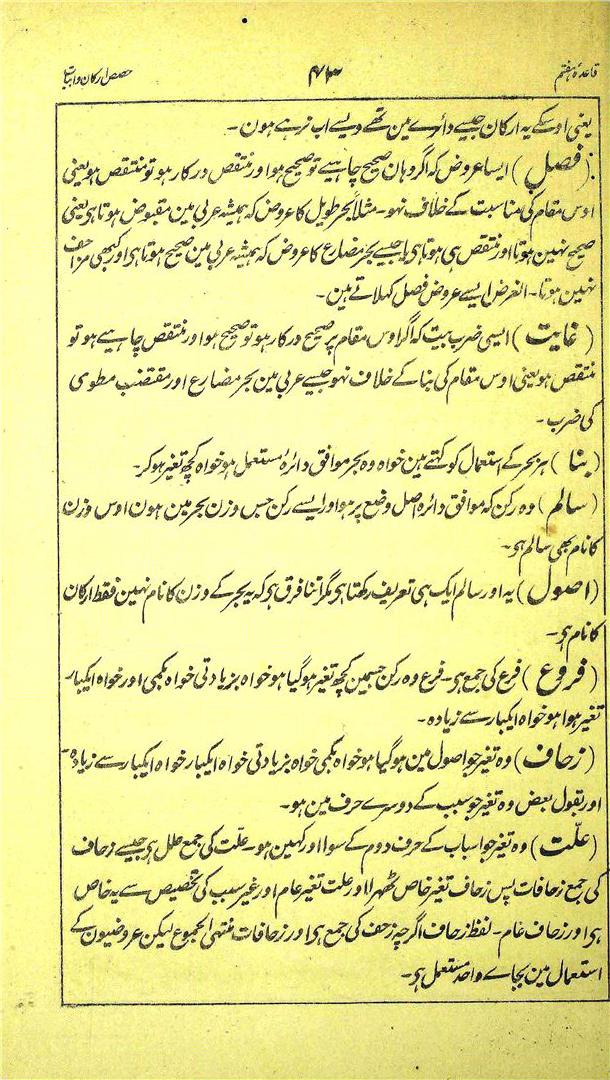 قاعدۂ ہفتم
۴۷۳
حصص ارکان و ابیات
یعنی اوسکے یہ ارکان جیسے دائرے مین تھے ویسے اب نرہے ہون۔
(فصل) ایسا عروض کہ اگر وہان صحیح چاہیے تو صحیح ہو اور منتقص درکار ہو تو منتقص ہو یعنی
اوس مقام کی مناسبت کے خلاف نہو۔ مثلاً بحر طویل کا عروض کہ ہمیشہ عربی مین مقبوض ہوتا ہی یعنی
صحیح نہین ہوتا اور منتقص ہی ہوتا ہی یا جیسے بحر مضارع کا عروض کہ ہمیشہ عربی مین صحیح ہوتا ہی اور کبھی مزاحف
نہین ہوتا۔ الغرض ایسے عروض فصل کہلاتے ہین۔
(غایت) ایسی ضرب بیت کہ اگر اوس مقام پر صحیح درکار ہو تو صحیح ہو اور منتقص چاہیے ہو تو
منتقص ہو یعنی اوس مقام کی بنا کے خلاف نہو جیسے عربی مین بحر مضارع اور مقتضب مطوی
کی ضرب۔
(بنا) ہر بحر کے استعمال کو کہتے ہین خواہ وہ بحر موافق دائرہ مستعمل ہو خواہ کچھ تغیر ہو کر۔
(سالم) وہ رکن کہ موافق دائرہ اصل وضع پر ہو اور ایسے رکن جس وزن بحر مین ہون اوس وزن
کا نام بھی سالم ہی۔
(اصول) یہ اور سالم ایک ہی تعریف رکھتا ہی مگر اتنا فرق ہی کہ یہ بحر کے وزن کا نام نہین فقط ارکان
کا نام ہی۔
(فروع) فرع کی جمع ہی۔ فرع وہ رکن جسمین کچھ تغیر ہو گیا ہو خواہ بزیادتی خواہ بکمی اور خواہ ایکبار
تغیر ہوا ہو خواہ ایکبار سے زیادہ۔
(زحاف) وہ تغیر جو اصول مین ہو گیا ہو خواہ بکمی خواہ بزیادتی خواہ ایکبار خواہ ایکبار سے زیادہ۔
اور بقول بعض وہ تغیر جو سبب کے دوسرے حرف مین ہو۔
(علّت) وہ تغیر جو اسباب کے حرف دوم کے سوا اور کہین ہو۔ علّت کی جمع علل ہی جیسے زحاف
کی جمع زحافات پس زحاف تغیر خاص ٹھہرا اور علت تغیر عام اور غیر سبب کی تخصیص سے یہ خاص
ہی اور زحاف عام۔ لفظ زحاف اگرچہ زحف کی جمع ہی اور زحافات منتہی الجموع لیکن عروضیون کے
استعمال مین بجاے واحد مستعمل ہی۔